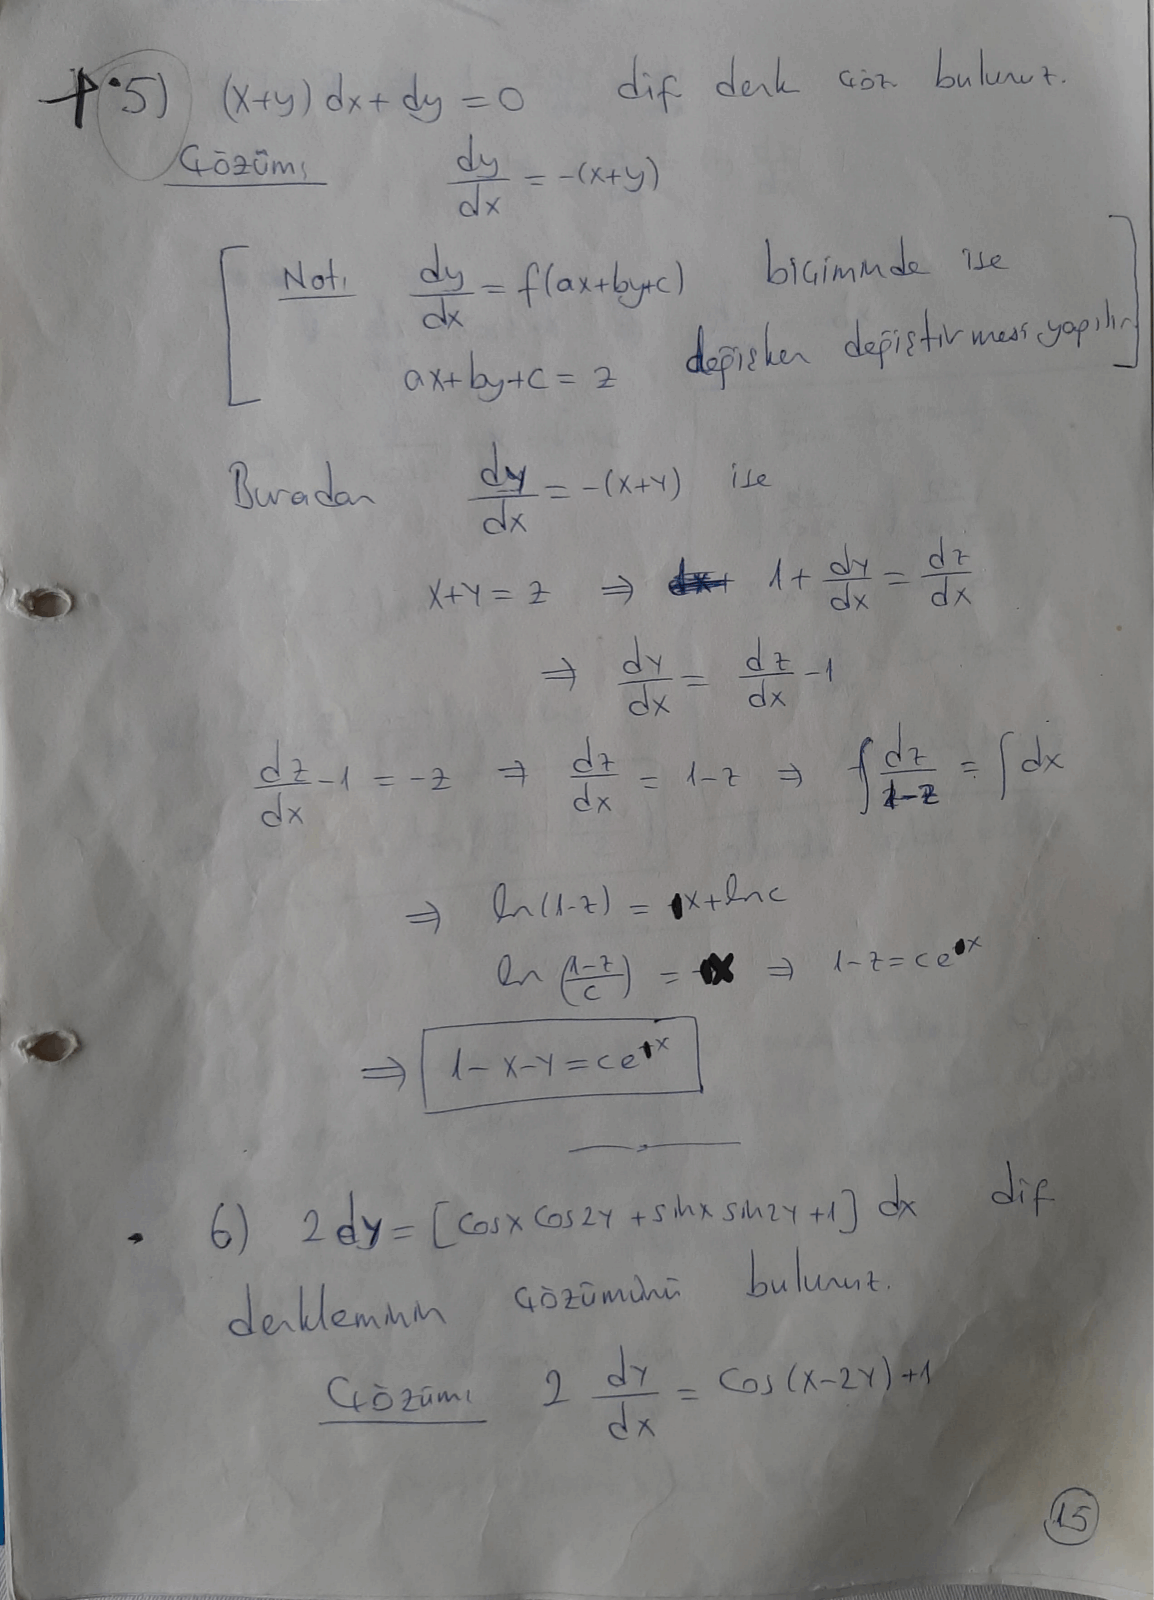 5) (x+y) dx + dy = 0 dif denk çöz bulunuz.
Çözüm: dy/dx = -(x+y)
Not: dy/dx = f(ax+by+c) biçiminde ise
ax+by+c = z değişken değiştirmesi yapılır
Buradan dy/dx = -(x+y) ise
x+y = z ⇒ 1 + dy/dx = dz/dx
⇒ dy/dx = dz/dx - 1
dz/dx - 1 = -z ⇒ dz/dx = 1-z ⇒ ∫ dz/1-z = ∫ dx
⇒ ln(1-z) = x + lnc
ln (1-z/c) = x ⇒ 1-z = ce x
⇒ 1-x-y = ce x
6) 2dy = [cosx cos2y + sinx sin2y + 1] dx dif
denkleminin çözümünü bulunuz.
Çözüm: 2 dy/dx = cos(x-2y)+1
15